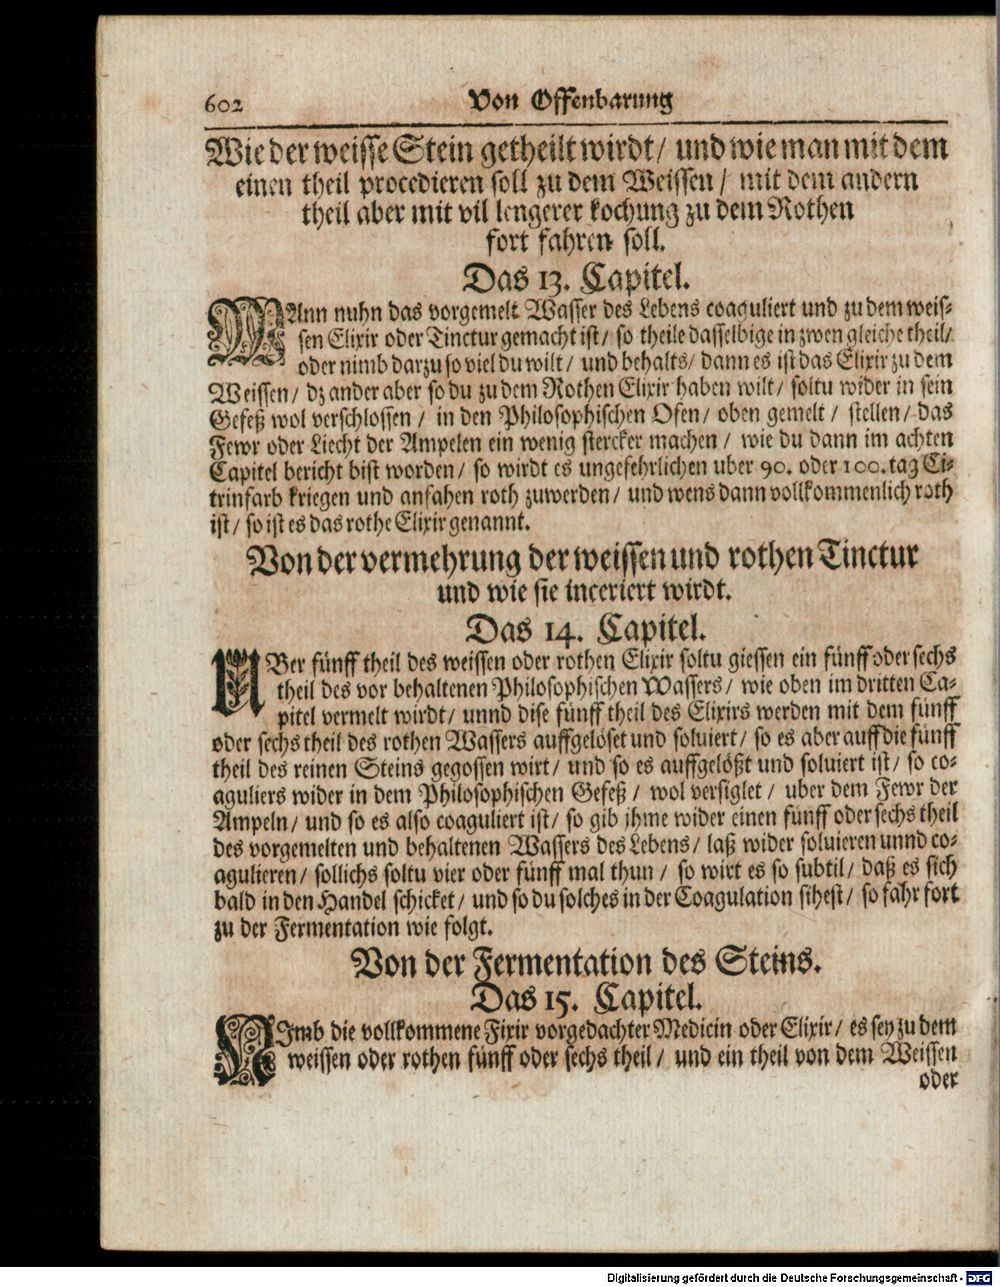 602 Von Offenbarung
Wie der weisse Stein getheilt wirdt / und wie man mit dem
einen theil procedieren soll zu dem Weissen / mit dem andern
theil aber mit vil lengerer kochung zu dem Rothen
fort fahren soll.
Das 13. Capitel.
WAnn nuhn das vorgemelt Wasser des Lebens coaguliert und zu dem weis-
sen Elixir oder Tinctur gemacht ist / so theile dasselbige in zwen gleiche theil /
oder nimb darzu so viel du wilt / und behalts / dann es ist das Elixir zu dem
Weissen / dz ander aber so du zu dem Rothen Elixir haben wilt / soltu wider in sein
Gefeß wol verschlossen / in den Philosophischen Ofen / oben gemelt / stellen / das
Fewr oder Liecht der Ampelen ein wenig stercker machen / wie du dann im achten
Capitel bericht bist worden / so wirdt es ungefehrlichen uber 90. oder 100. tag Ci-
trinfarb kriegen und anfahen roth zuwerden / und wens dann vollkommenlich roth
ist / so ist es das rothe Elixir genannt.
Von der vermehrung der weissen und rothen Tinctur
und wie sie inceriert wirdt.
Das 14. Capitel.
UBer fünff theil des weissen oder rothen Elixir soltu giessen ein fünff oder sechs
theil des vor behaltenen Philosophischen Wassers / wie oben im dritten Ca-
pitel vermelt wirdt / unnd dise fünff theil des Elixirs werden mit dem fünff
oder sechs theil des rothen Wassers auffgelöset und soluiert / so es aber auff die fünff
theil des reinen Steins gegossen wirt / und so es auffgelößt und soluiert ist / so co-
aguliers wider in dem Philosophischen Gefeß / wol versiglet / uber dem Fewr der
Ampeln / und so es also coaguliert ist / so gib jhme wider einen fünff oder sechs theil
des vorgemelten und behaltenen Wassers des Lebens / laß wider soluieren unnd co-
agulieren / sollichs soltu vier oder fünff mal thun / so wirt es so subtil / daß es sich
bald in den Handel schicket / und so du solches in der Coagulation sihest / so fahr fort
zu der Fermentation wie folgt.
Von der Fermentation des Steins.
Das 15. Capitel.
NImb die vollkommene Fixir vorgedachter Medicin oder Elixir / es sey zu dem
weissen oder rothen fünff oder sechs theil / und ein theil von dem Weissen
oder
Digitalisierung gefördert durch die Deutsche Forschungsgemeinschaft - DFG